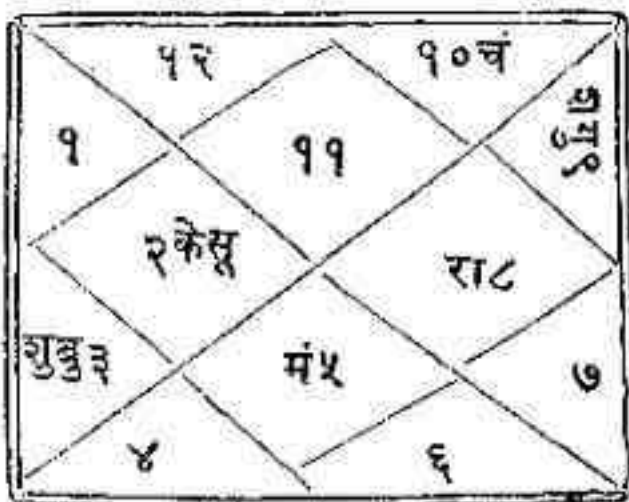 १२
१०चं
१
११
शगु९
२केसू
रा८
शुबु३
मं५
७
४
६